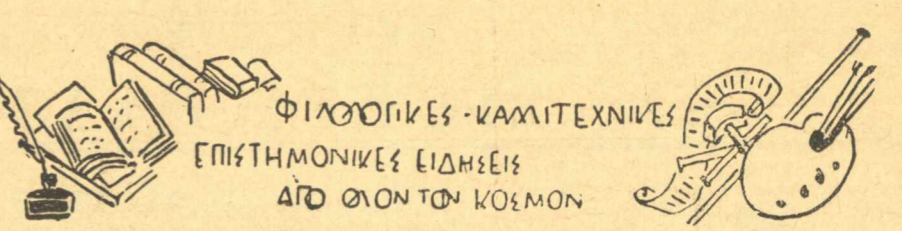 ΦΙΛΟΛΟΓΙΚΕΣ - ΚΑΛΛΙΤΕΧΝΙΚΕΣ
ΕΠΙΣΤΗΜΟΝΙΚΕΣ ΕΙΔΗΣΕΙΣ
ΑΠΟ ΟΛΟΝ ΤΟΝ ΚΟΣΜΟΝ